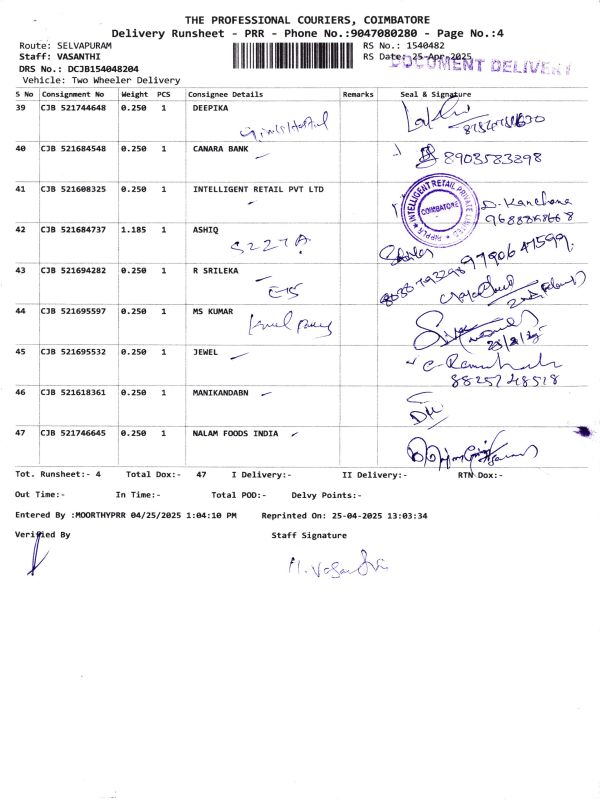 THE PROFESSIONAL COURIERS, COIMBATORE
Delivery Runsheet - PRR - Phone No.:9047080280 - Page No.:4
Route: SELVAPURAM RS No.: 1540482
Staff: VASANTHI RS Date: 25-Apr-2025
DOCUMENT DELIVERY
DRS No.: DCJB154048204
Vehicle: Two Wheeler Delivery
S No Consignment No Weight PCS Consignee Details Remarks Seal & Signature
39 CJB 521744648 0.250 1 DEEPIKA
40 CJB 521684548 0.250 1 CANARA BANK 8903583398
41 CJB 521608325 0.250 1 INTELLIGENT RETAIL PVT LTD
INTELLIGENT RETAIL PRIVATE LIMITED
COIMBATORE
D. Kanchana
42 CJB 521684737 1.185 1 ASHIQ
43 CJB 521694282 0.250 1 R SRILEKA
44 CJB 521695597 0.250 1 MS KUMAR
45 CJB 521695532 0.250 1 JEWEL
8825748518
46 CJB 521618361 0.250 1 MANIKANDABN
47 CJB 521746645 0.250 1 NALAM FOODS INDIA
Tot. Runsheet:- 4 Total Dox:- 47 I Delivery:- II Delivery:- RTN Dox:-
Out Time:- In Time:- Total POD:- Delvy Points:-
Entered By :MOORTHYPRR 04/25/2025 1:04:10 PM Reprinted On: 25-04-2025 13:03:34
Verified By Staff Signature